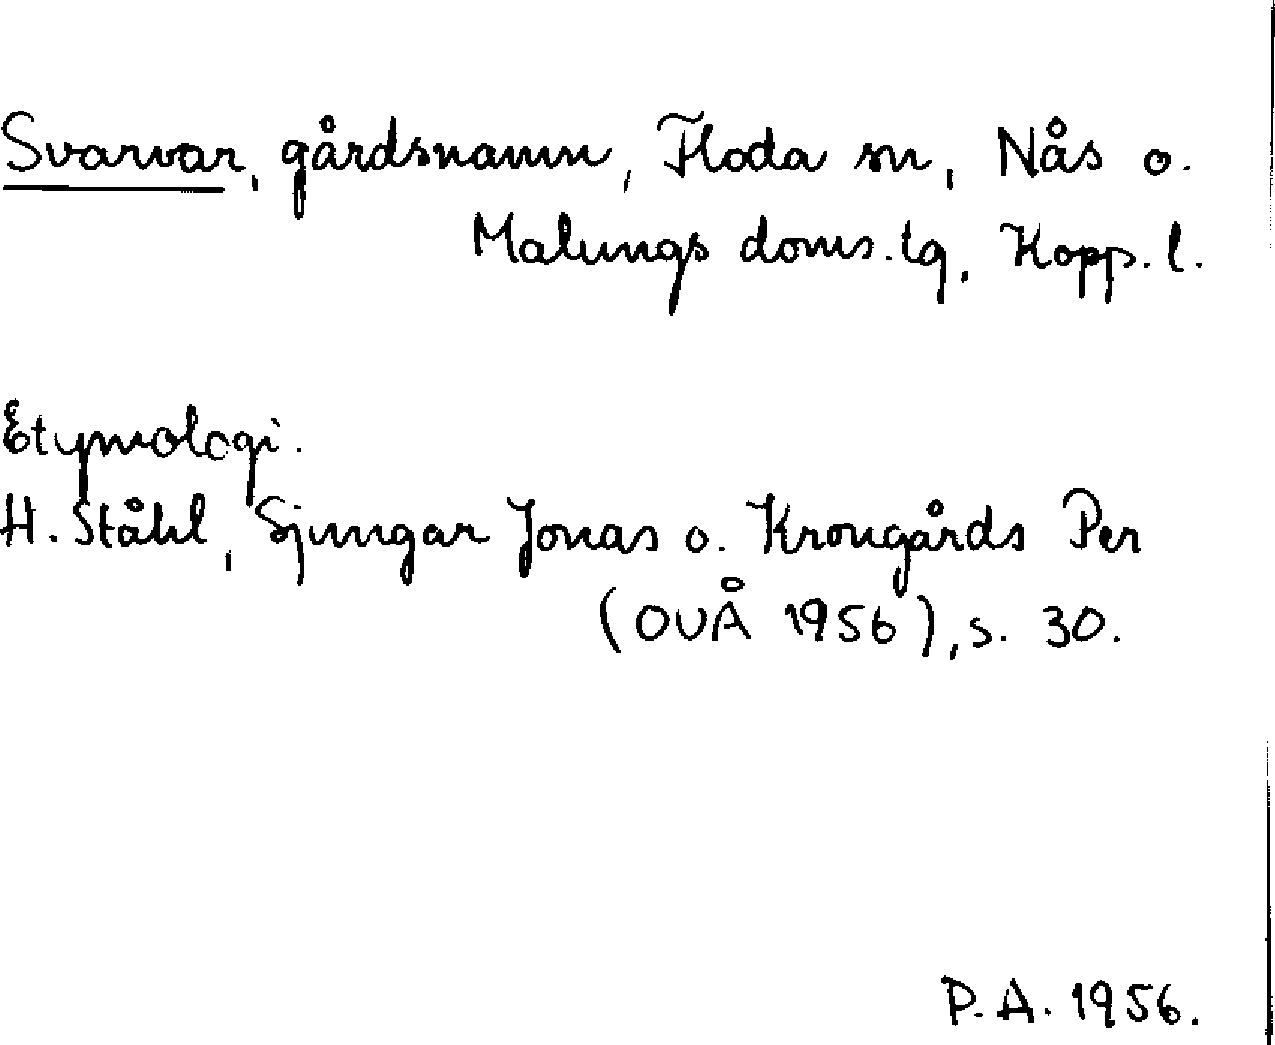 Svarvar, gårdsnamn, Floda sn, Nås o.
Malungs doms.tg, Kopp. l.
Etymologi.
H. Ståhl, Sjungar Jonas o. Krongårds Per
(OUÅ 1956), s. 30.
P. A. 1956.